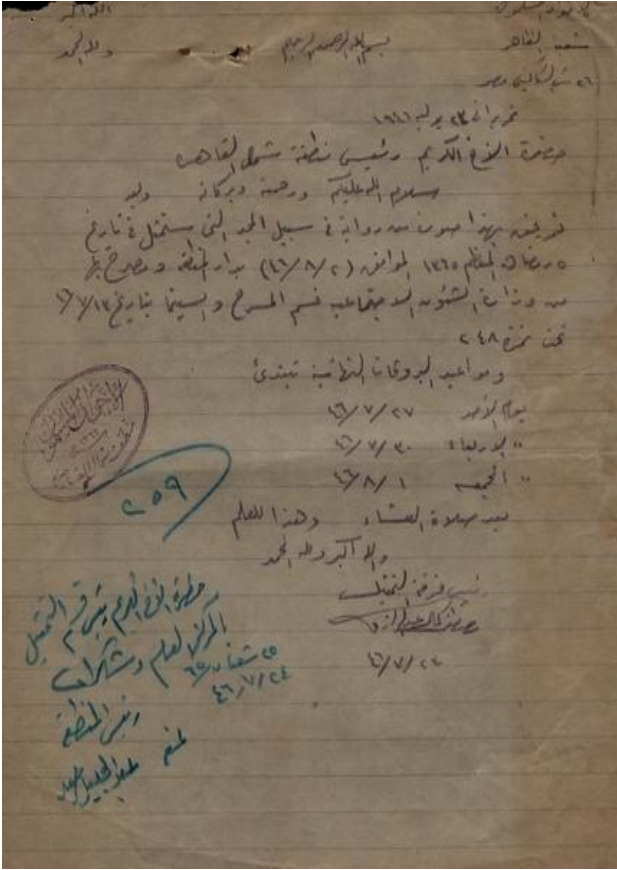 الإخوان المسلمون
الله أكبر
شعبة القاهر
بسم الله الرحمن الرحيم
ولله الحمد
مصر
تحريرا في ٢٣ يوليه ١٩٤٦
حضرة الأخ الكريم رئيس منطقة شمال القاهرة
سلام الله عليكم ورحمته وبركاته وبعد
بهذا صورة من رواية في سبيل المجد التى ستمثل في تاريخ
٥ رمضان المعظم ١٣٦٥ الموافق (٤٦/٨/٢) بدار المنطقة ومصرح بها
من وزارة الشئون الاجتماعية قسم المسرح والسينما بتاريخ
تحت نمرة ٢٤٨
ومواعيد البروفات النهائية تبتدئ
يوم الأحد ٤٦/٧/٢٧
" الاربعاء ٤٦/٧/٣٠
" الجمعه ٤٦/٨/١
بعد صلاة العشاء وهذا للعلم
والله أكبر ولله الحمد
رئيس فرقة التمثيل
٤٦/٧/٢٤
٢٥٩
حضرة الأخ الكريم رئيس قسم التمثيل
المركز للعلم وشكرا
٢٥ شعبان ٦٥
٤٦/٧/٢٤
رئيس المنطقة
عبد الجليل